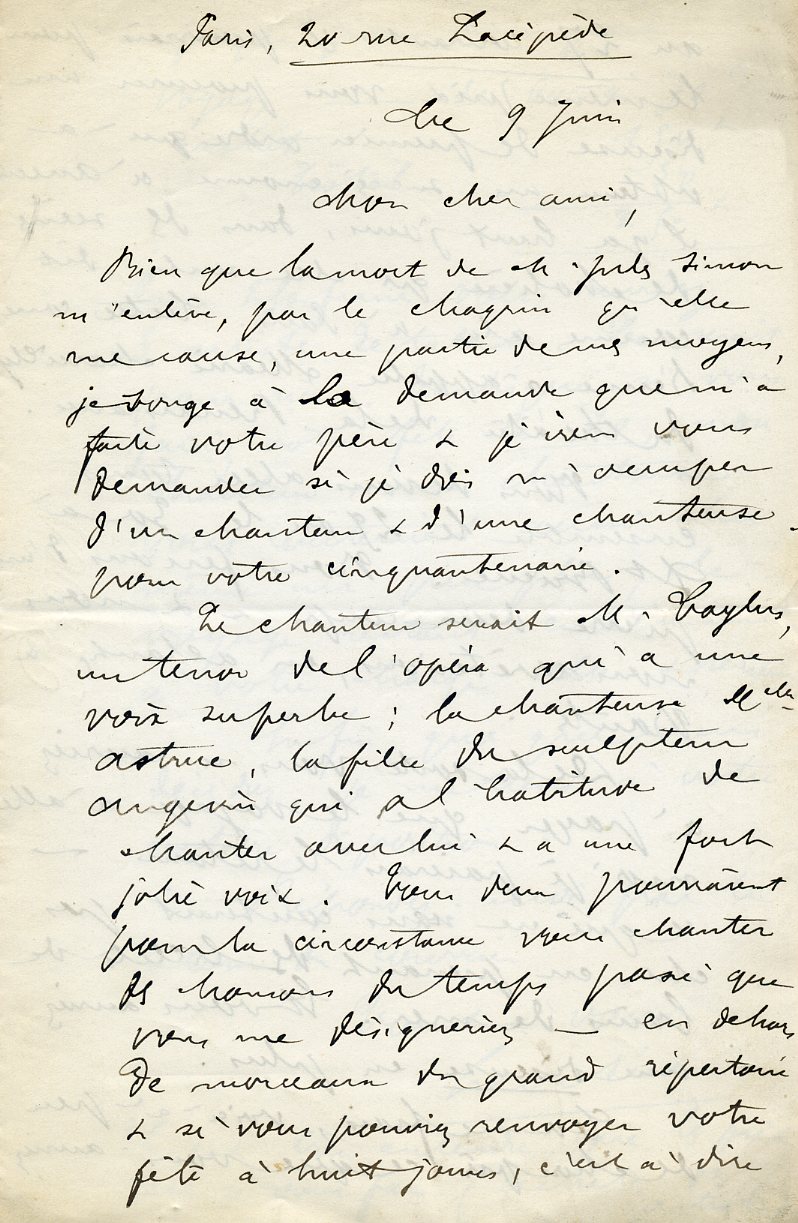 Paris, 20 rue Lacépède
Ce 9 Juin
Mon cher ami,
Bien que la mort de M. Jules Simon
m'enlève, par le chagrin qu'elle
me cause, une partie de mes moyens,
je songe à la demande que m'a
faite votre père & je viens vous
demander si je dois m'occuper
d'un chanteur & d'une chanteuse
pour votre cinquantenaire.
Le chanteur serait M. Caylus,
un tenor de l'opéra qui a une
voix superbe ; la chanteuse Melle
Astruc, la fille du sculpteur
angevin qui a l'habitude de
chanter avec lui & a une fort
jolie voix. Tous deux pourraient
pour la circonstance vous chanter
des chansons du temps passé que
vous me désigneriez — en dehors
de morceaux du grand répertoire
& si vous pouviez renvoyer votre
fête à huit jours, c'est à dire